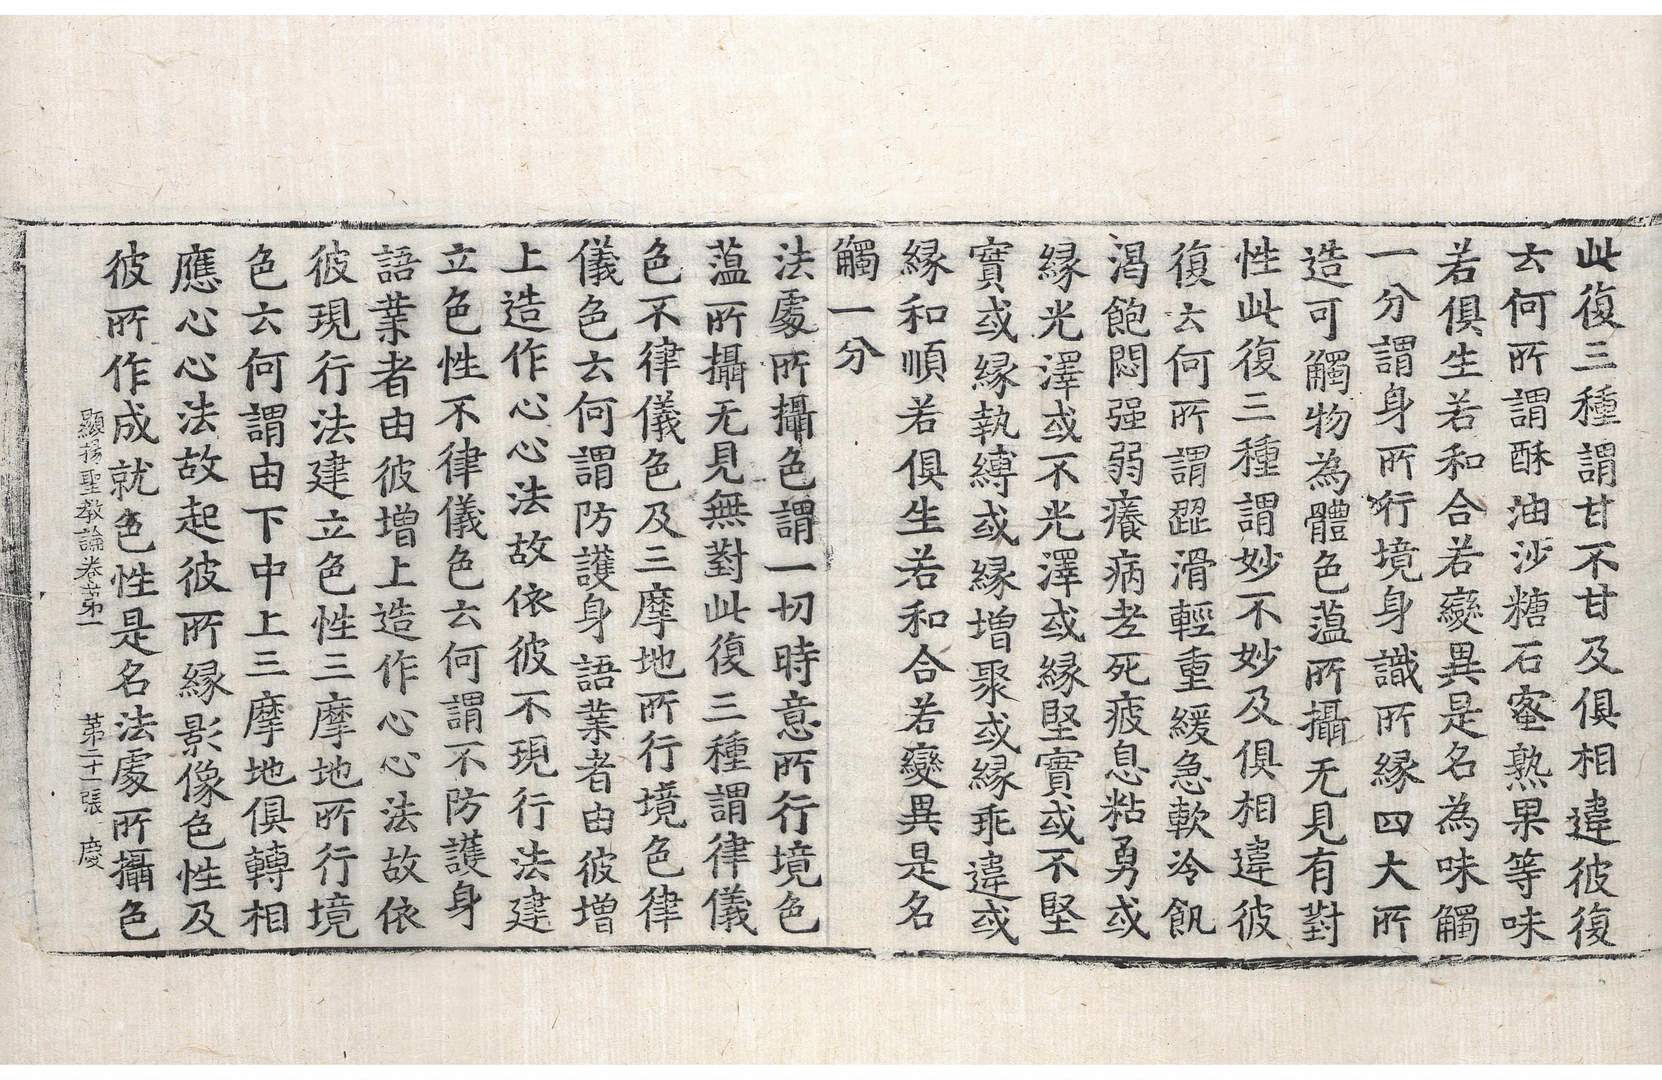 此復三種謂甘不甘及俱相違彼復
云何所謂酥油沙糖石蜜熟果等味
若俱生若和合若變異是名為味觸
一分謂身所行境身識所縁四大所
造可觸物為體色蕰所攝无見有對
性此復三種謂妙不妙及俱相違彼
復云何所謂澀滑輕重緩急軟冷飢
渴飽悶强弱癢病老死疲息粘勇或
縁光澤或不光澤或縁堅實或不堅
實或縁執縛或縁增聚或縁乖違或
縁和順若俱生若和合若變異是名
觸一分
法處所攝色謂一切時意所行境色
蕰所攝无見無對此復三種謂律儀
色不律儀色及三摩地所行境色律
儀色云何謂防護身語業者由彼增
上造作心心法故依彼不現行法建
立色性不律儀色云何謂不防護身
語業者由彼增上造作心心法故依
彼現行法建立色性三摩地所行境
色云何謂由下中上三摩地俱轉相
應心心法故起彼所縁影像色性及
彼所作成就色性是名法處所攝色
顯揚聖教論卷第一 第二十一張 慶